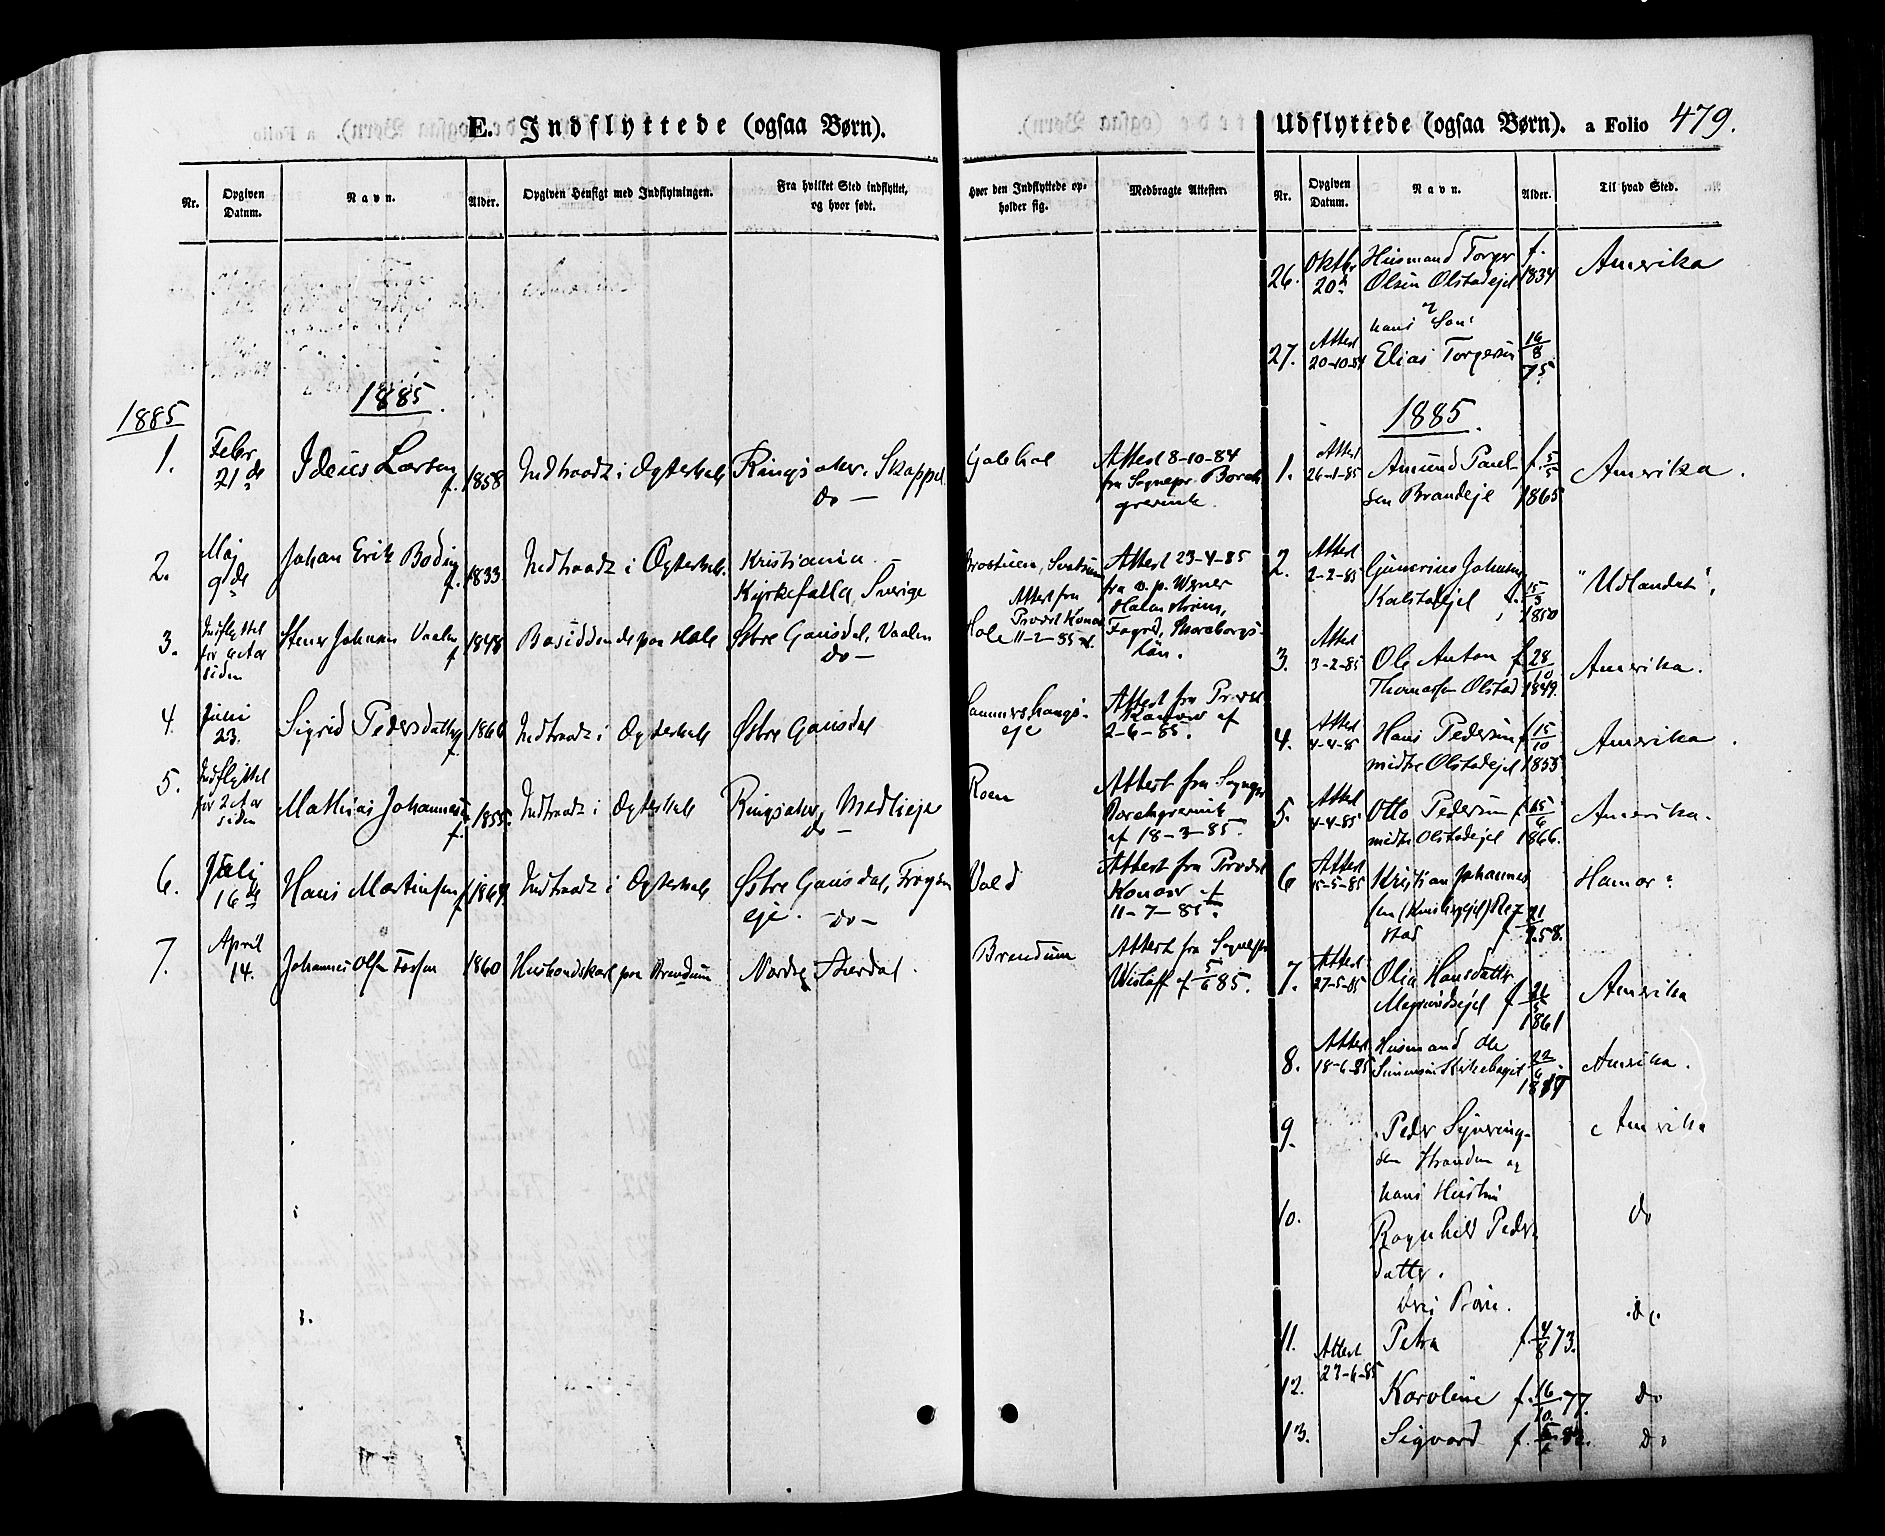 E. Indflyttede (ogsaa Børn).
Nr.
Opgiven Datum.
Navn.
Alder.
Opgiven Hensigt med Indflytningen.
Fra hvilket Sted indflyttet, og hvor født.
Hvor den Indflyttede opholder sig.
Medbragte Attester.
1885
1885.
1.
Febr 21 de
Larsen f. 1858
Indtraadt i Ægteskab
Ringsaker. Skappel
do —
Attest 8-10-84
fra Sognepr. Borch
grevink.
2.
Maj 9 de
Johan Erik Boding f. 1833
Indtraadt i Ægteskab.
Kristiania —
Kyrkefalla, Sverige
Attest 23-4-85
fra v. p.
3.
Indflyttet for siden
Johnsen Vaalen f 1848
Østre Gausdal, Vaalen
do —
Hole
Attest fra
Provst Konow
11-2-85
4.
Juni 23.
Sigrid Pedersdatter f 1866
Indtraadt i Ægteskab
Østre Gausdal
eje
Attest fra Provst
Konow af
2-6-85.
5.
Indflyttet for 2 Aar siden
Mathias Johannesen f 1855.
Indtraadt i Ægteskab
Ringsaker, Medlieje
do —
Roen
Attest fra Sognepr
Borchgrevink
af 18-3-85.
6.
Juli 16 de
Hans Martinsen f 1864
Indtraadt i Ægteskab
Østre Gausdal,
eje. —do—
Vold
Attest fra Provst
Konow af
11-7-85.
7.
April 14.
Johannes Olsen Fossen 1860
Husbondskarl paa Brendum
Nordre
Brendum
Attest fra Sognepr
af 5/6 85.
Udflyttede (ogsaa Børn). a Folio 479.
Nr.
Opgiven Datum.
Navn.
Alder.
Til hvad Sted.
26.
Oktbr 20 de
Husmand Torger
Olsen Olstadejet
f. 1834
Amerika
27.
Attest 20-10-84
hans Søn:
Elias Torgersen
16/8 75
1885.
1.
Attest 26-1-85
Amund Paul-
sen Brandeje
f. 5/5 1865
Amerika.
2.
Attest 2-2-85
Gunerius Johnsen
Kalstadejet
f. 15/3 1850
"Udlandet".
3.
Attest 3-2-85
Ole Anton
Thomassen Olstad
f 28/10 1849.
Amerika.
4.
Attest 4-4-85
Hans Pedersen
midtre Olstadejet
f 15/10 1853
Amerika.
5.
Attest 4-4-85
Otto Pedersen
midtre Olstadejet
1866.
Amerika.
6
Attest 15-5-85
Kristian Johannes
sen
f 21/7 58.
Hamar.
7.
Attest 27-5-85
Olia Hansdatter
f 21/5 1861
Amerika
8.
Attest 18-6-85
Husmand Ole
Simensen Kirkebøejet
22/6
Amerika.
9.
Peder Syvering-
sen og
hans Hustru
Amerika
10.
Ragnhild Peders
datter.
do
Børn.
11.
Petra
f. 4/8 73.
do.
Attest 23-6-85
12.
Karoline
f. 16/10 77.
do
13.
Sigvard
do